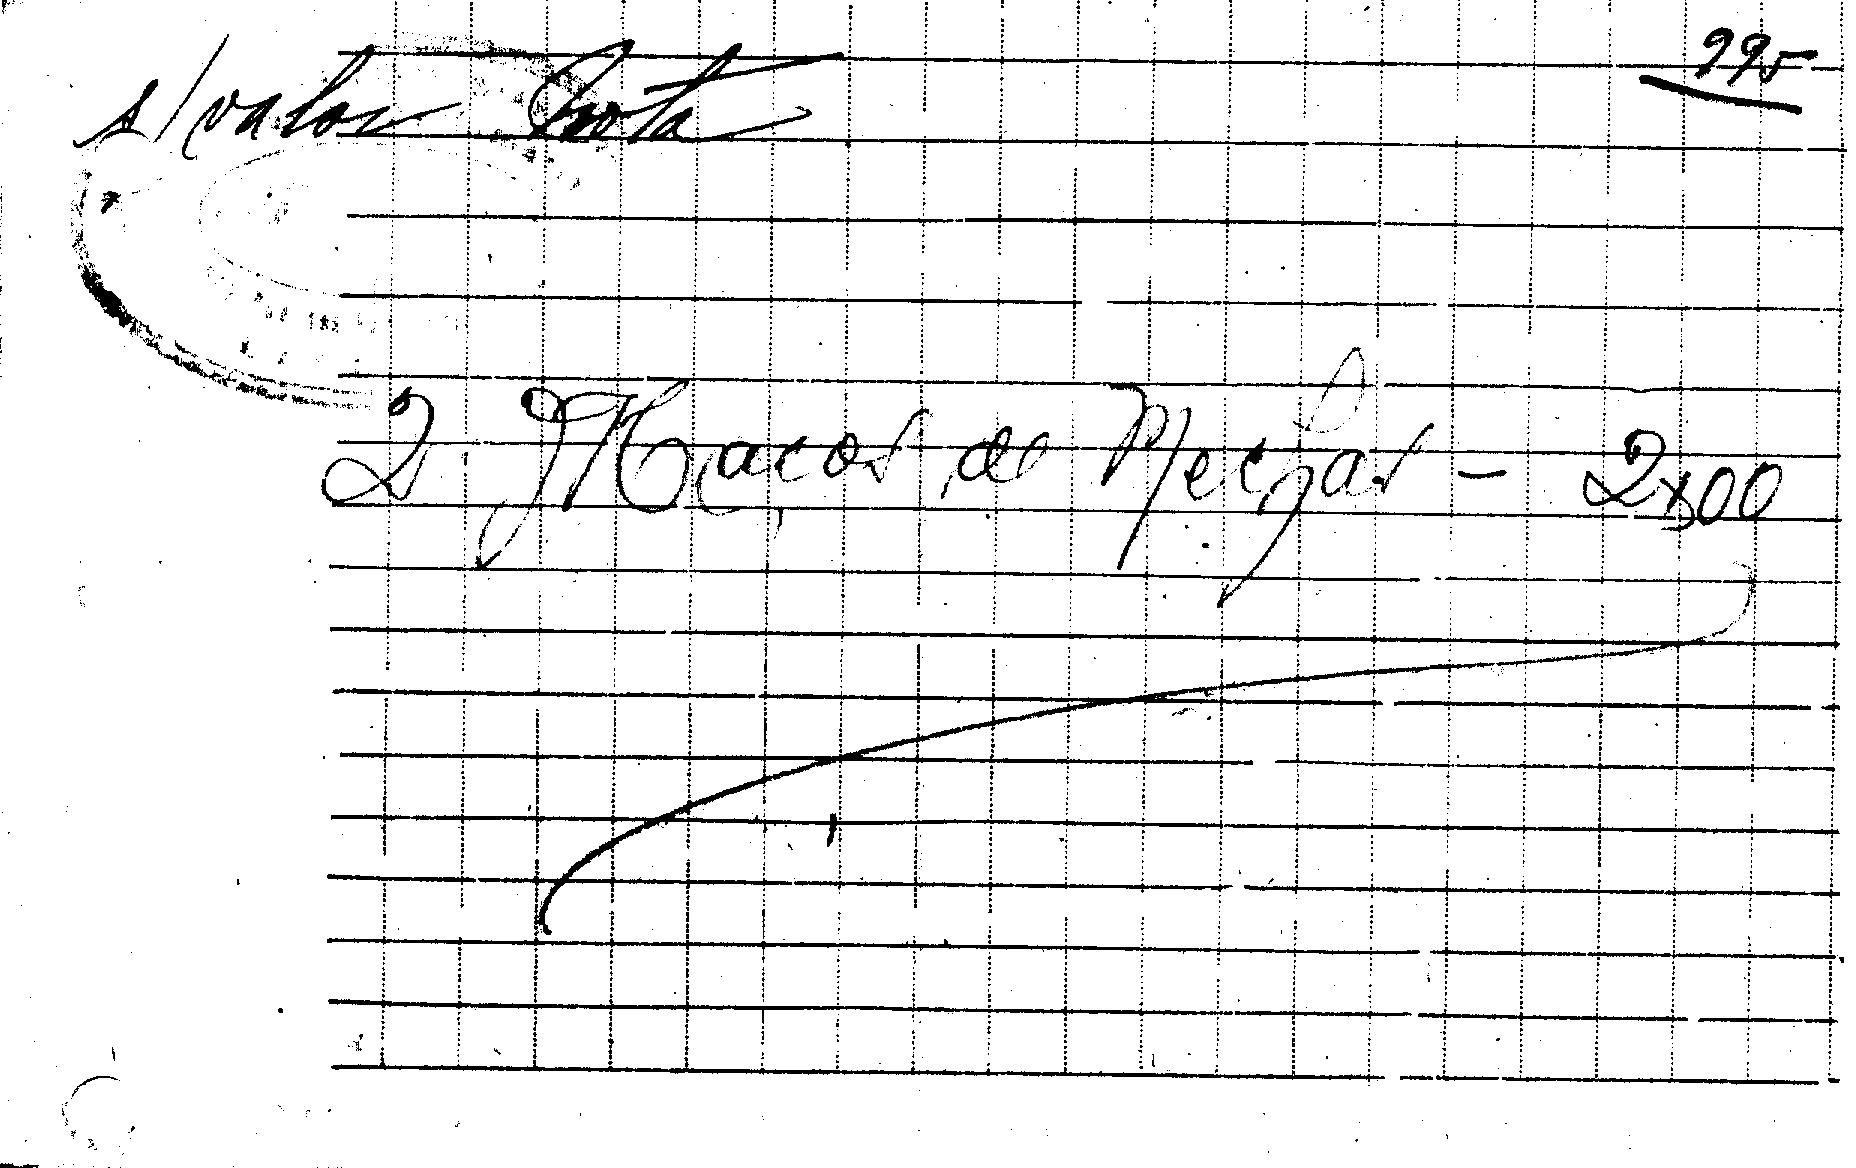 s/ valor Nota
995
2 Maços de Mechas - 2$00